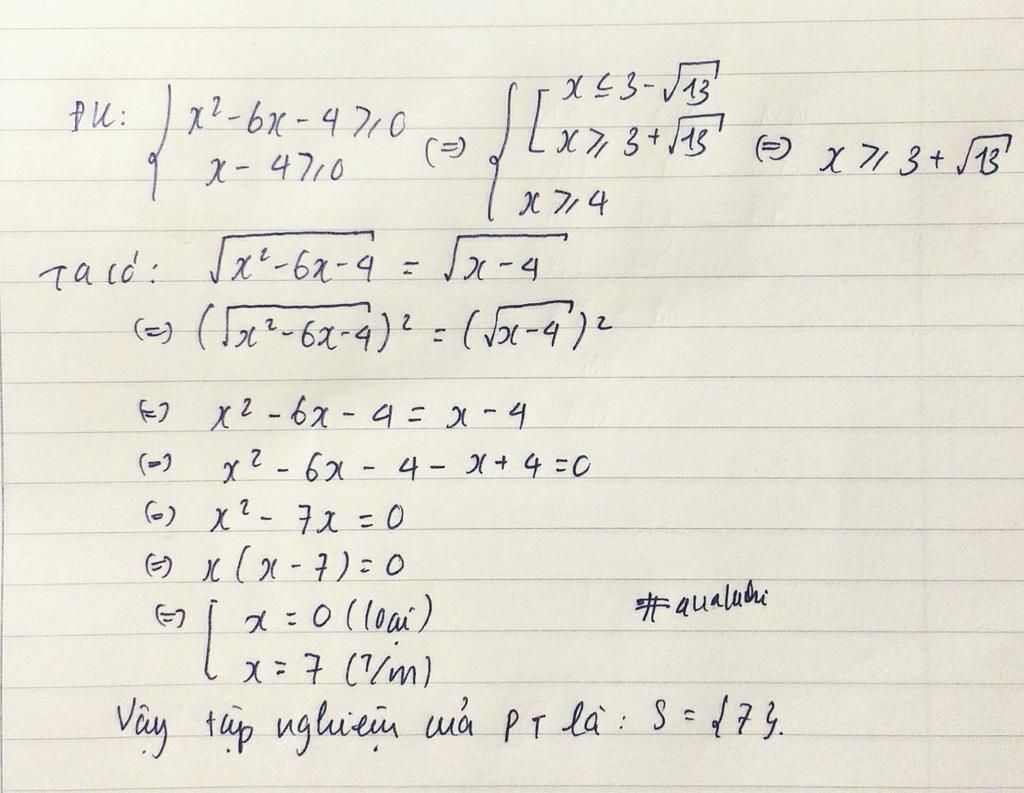 ĐK: { x² - 6x - 4 ⩾ 0 (=) { [ x ≤ 3 - √13
x - 4 ⩾ 0 x ⩾ 3 + √13 (=) x ⩾ 3 + √13
x ⩾ 4
Ta có: √(x² - 6x - 4) = √(x - 4)
(=) (√(x² - 6x - 4))² = (√(x - 4))²
(=) x² - 6x - 4 = x - 4
(=) x² - 6x - 4 - x + 4 = 0
(=) x² - 7x = 0
(=) x(x - 7) = 0
(=) [ x = 0 (loại)
x = 7 (T/m)
Vậy tập nghiệm của PT là: S = {7}.